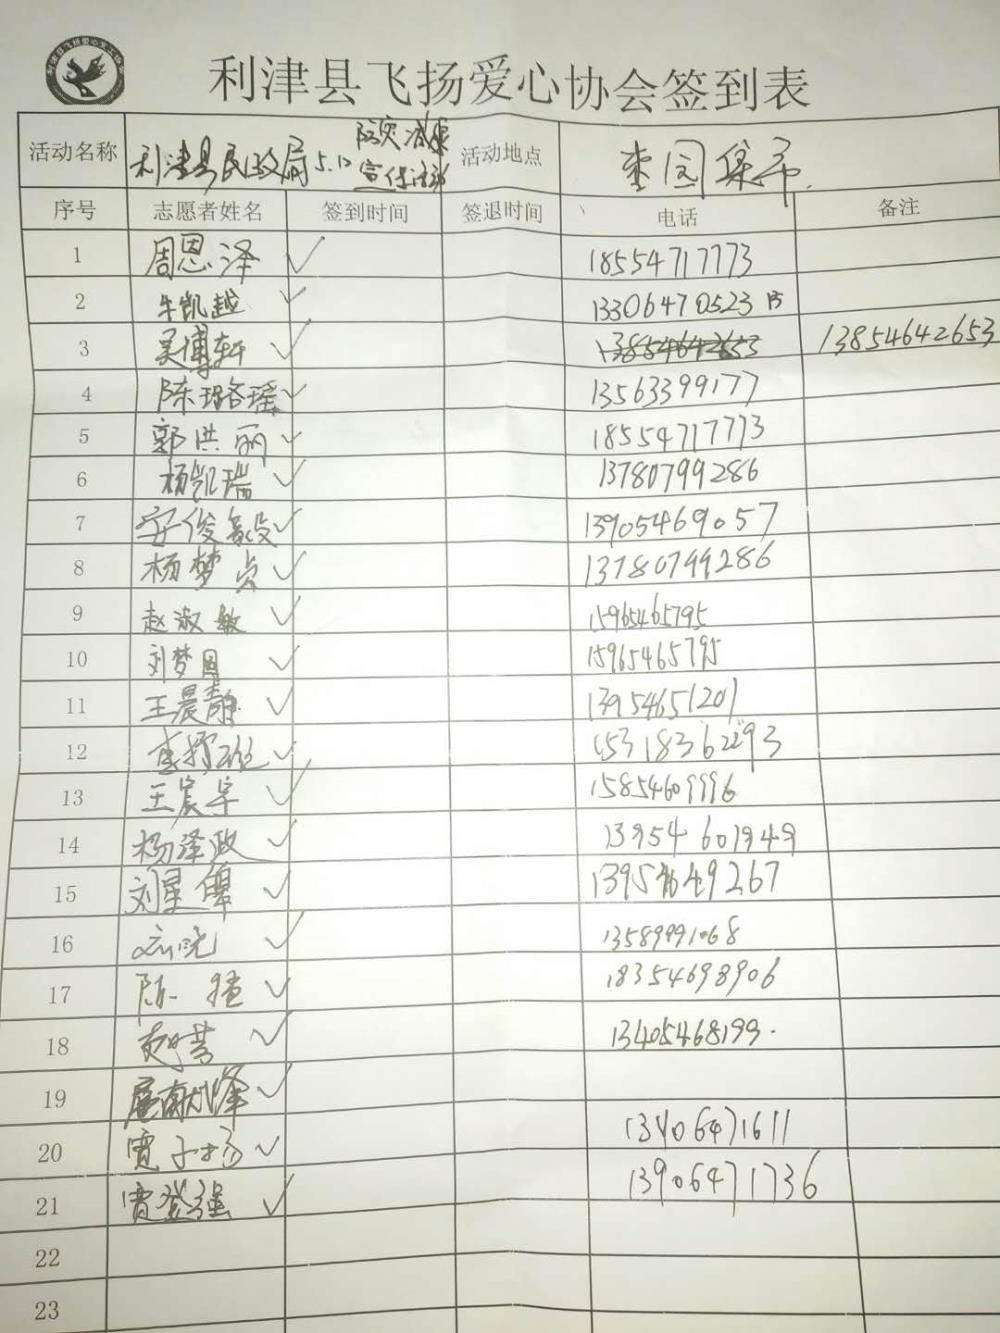 利津县飞扬爱心协会签到表
活动名称 利津县民政局5.12防灾减灾宣传活动 活动地点 枣园集市
序号 志愿者姓名 签到时间 签退时间 电话 备注
1 周恩泽 ✓ 18554717773
2 牛凯越 ✓ 13306470523
3 吴博轩 ✓ 13854642653 13854642653
4 陈璐瑶 ✓ 13563399177
5 郭洪丽 ✓ 18554717773
6 杨凯瑞 ✓ 13780799286
7 安俊毅 ✓ 13905469057
8 杨梦贞 ✓ 13780799286
9 赵淑敏 15965465795
10 刘梦圆 ✓ 15965465795
11 王晨静 ✓ 13954651201
12 ✓ 15318362293
13 王宸宇 ✓ 15854609996
14 杨泽政 ✓ 13954601949
15 刘星 ✓ 13954649267
16 ✓ 13589991068
17 陈 ✓ 18354698906
18 ✓ 13405468199
19 ✓
20 ✓ 13406471611
21 登强 ✓ 13906471736
22
23